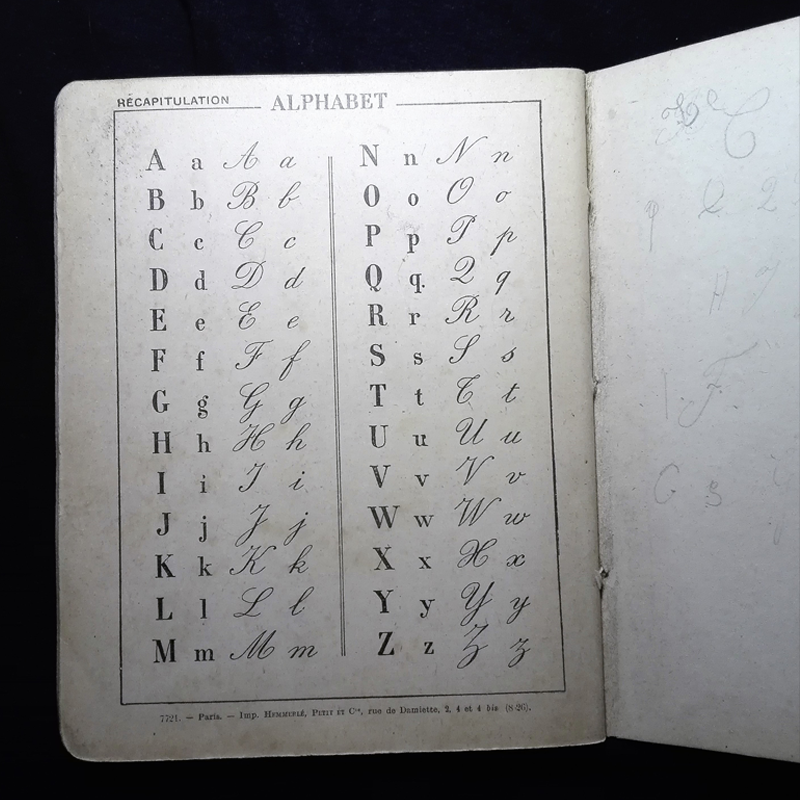 RÉCAPITULATION ALPHABET
A a A a
B b B b
C c C c
D d D d
E e E e
F f F f
G g G g
H h H h
I i I i
J j J j
K k K k
L l L l
M m M m
N n N n
O o O o
P p P p
Q q Q q
R r R r
S s S s
T t T t
U u U u
V v V v
W w W w
X x X x
Y y Y y
Z z Z z
7721. — Paris. — Imp. HEMMERLÉ, PETIT ET Cie, rue de Damiette, 2, 4 et 4 bis (8-26).
C
p Q 2
H J
F
C s